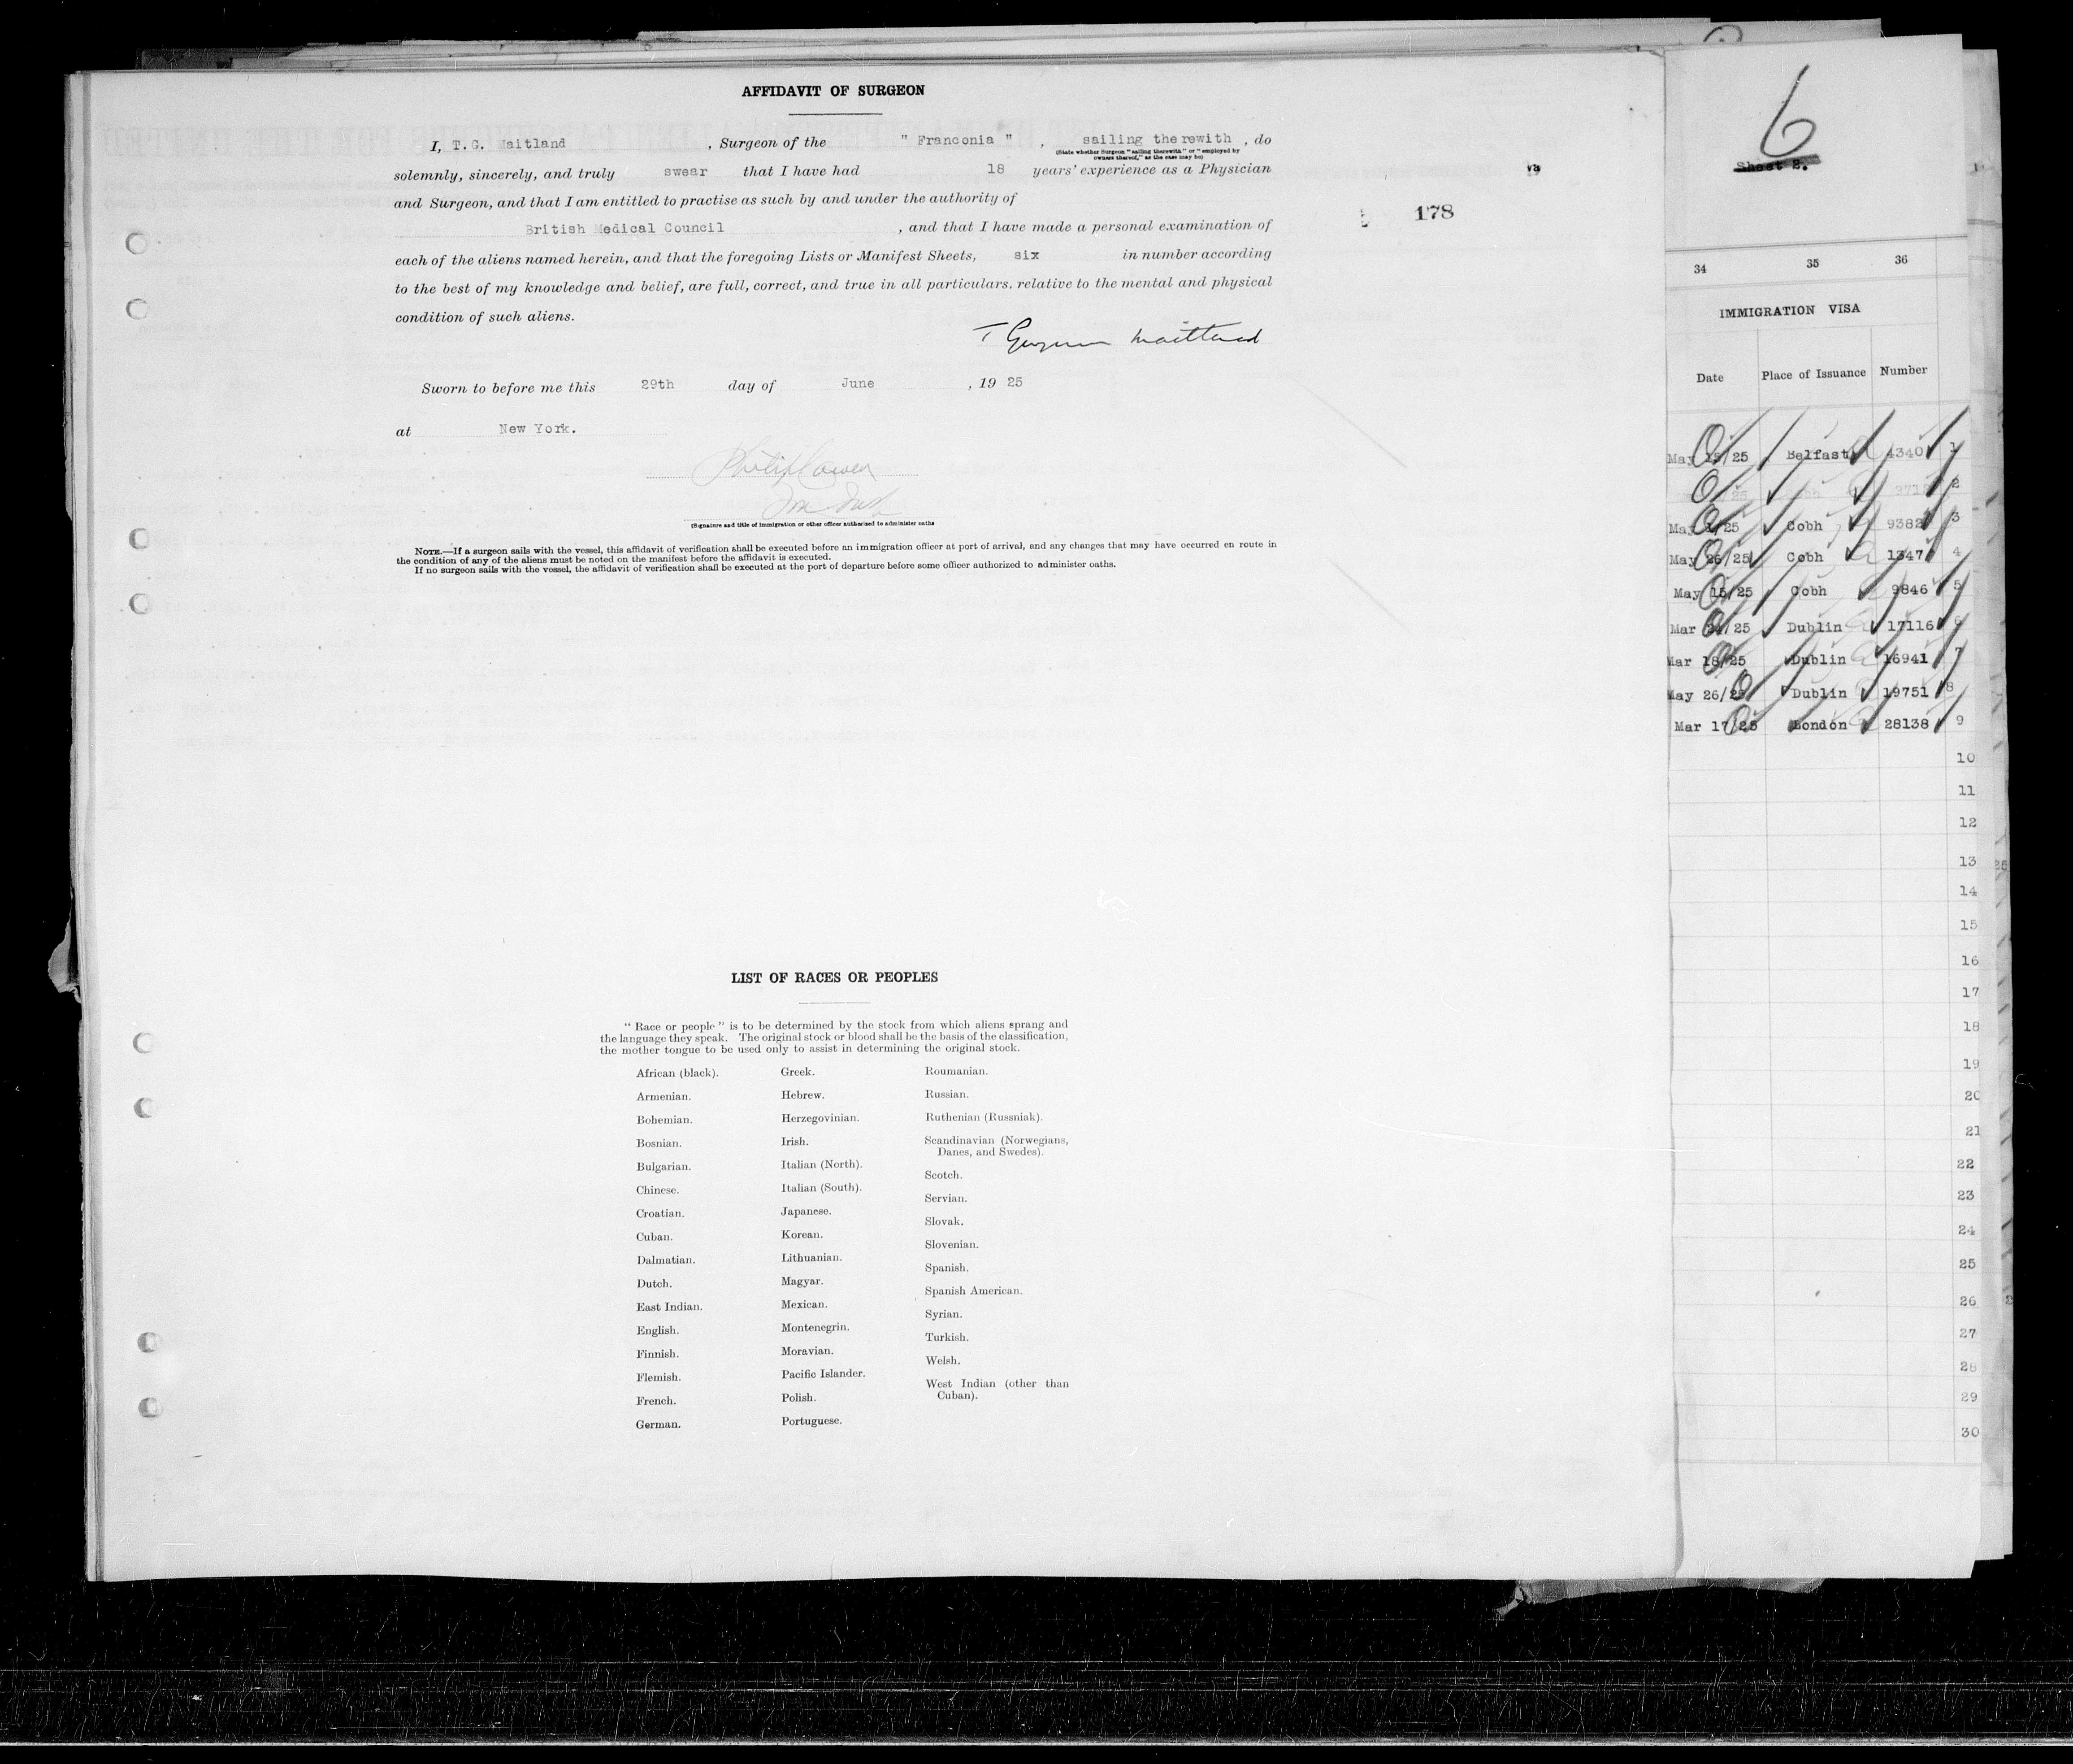 AFFIDAVIT OF SURGEON
I, T.G. Maitland , Surgeon of the " Franconia " , sailing therewith , do
(State whether Surgeon "sailing therewith" or "employed by
owners thereof," as the case may be)
solemnly, sincerely, and truly swear that I have had 18 years' experience as a Physician
and Surgeon, and that I am entitled to practise as such by and under the authority of
British Medical Council , and that I have made a personal examination of
each of the aliens named herein, and that the foregoing Lists or Manifest Sheets, six in number according
to the best of my knowledge and belief, are full, correct, and true in all particulars, relative to the mental and physical
condition of such aliens.
T Maitland
Sworn to before me this 29th day of June , 19 25
at New York.
(Signature and title of immigration or other officer authorised to administer oaths
NOTE.—If a surgeon sails with the vessel, this affidavit of verification shall be executed before an immigration officer at port of arrival, and any changes that may have occurred en route in
the condition of any of the aliens must be noted on the manifest before the affidavit is executed.
If no surgeon sails with the vessel, the affidavit of verification shall be executed at the port of departure before some officer authorized to administer oaths.
178
LIST OF RACES OR PEOPLES
" Race or people " is to be determined by the stock from which aliens sprang and
the language they speak. The original stock or blood shall be the basis of the classification,
the mother tongue to be used only to assist in determining the original stock.
African (black).
Armenian.
Bohemian.
Bosnian.
Bulgarian.
Chinese.
Croatian.
Cuban.
Dalmatian.
Dutch.
East Indian.
English.
Finnish.
Flemish.
French.
German.
Greek.
Hebrew.
Herzegovinian.
Irish.
Italian (North).
Italian (South).
Japanese.
Korean.
Lithuanian.
Magyar.
Mexican.
Montenegrin.
Moravian.
Pacific Islander.
Polish.
Portuguese.
Roumanian.
Russian.
Ruthenian (Russniak).
Scandinavian (Norwegians,
Danes, and Swedes).
Scotch.
Servian.
Slovak.
Slovenian.
Spanish.
Spanish American.
Syrian.
Turkish.
Welsh.
West Indian (other than
Cuban).
6
Sheet 2.
34 35 36
IMMIGRATION VISA
Date Place of Issuance Number
May 15/25 Belfast 4340 1
2
May /25 Cobh 9382 3
May 26/25 Cobh 1347 4
May 15/25 Cobh 9846 5
Mar /25 Dublin 17116 6
Mar 18/25 Dublin 16941 7
May 26/25 Dublin 19751 8
Mar 17/25 London 28138 9
10
11
12
13
14
15
16
17
18
19
20
21
22
23
24
25
26
27
28
29
30